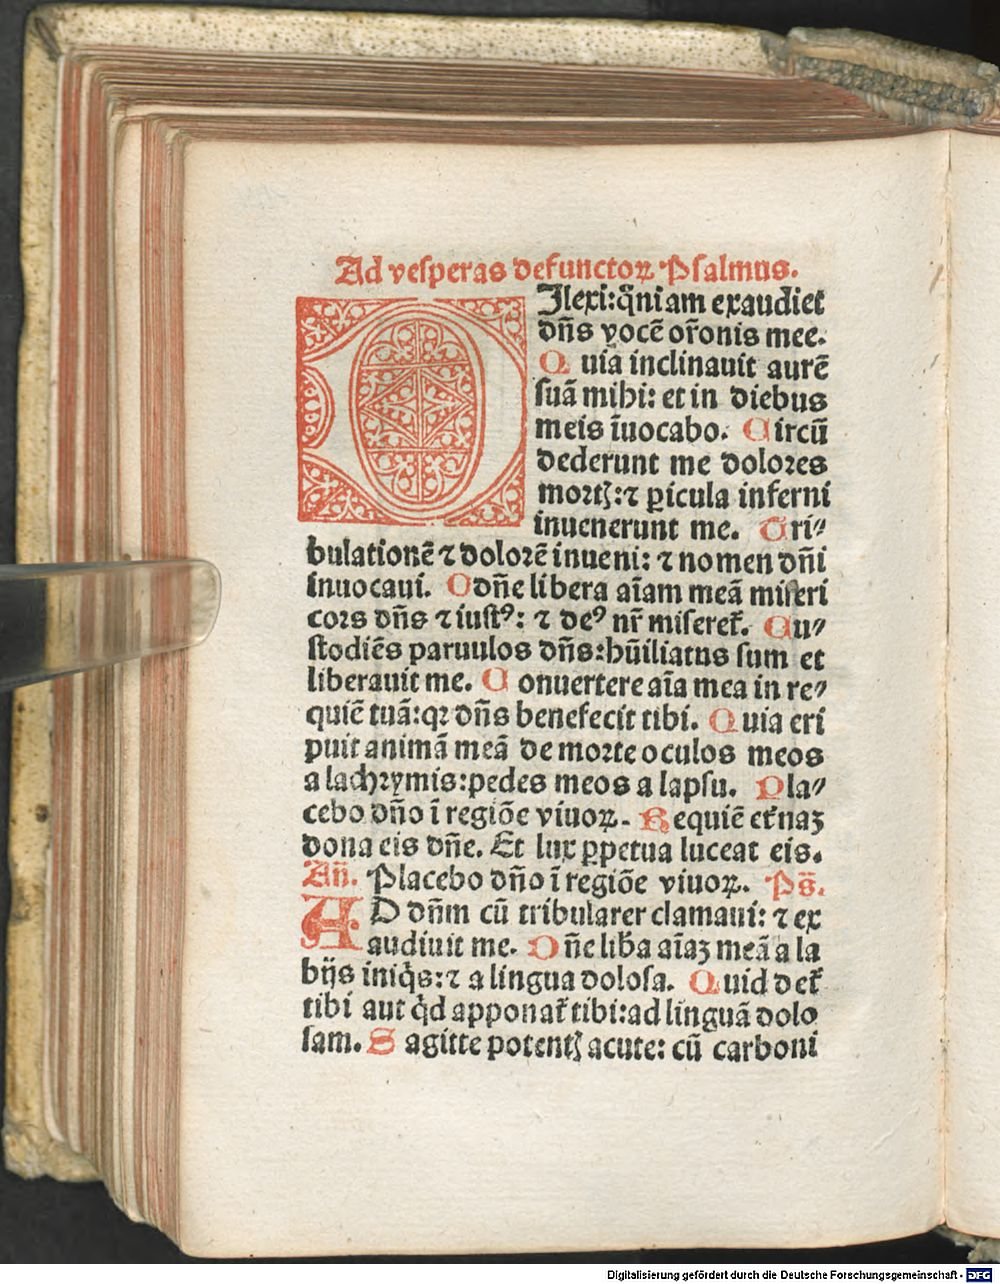 Ad vesperas defunctoꝝ Psalmus.
DIlexi: qm̄iam exaudiet
dn̄s vocē or̄onis mee.
Quia inclinauit aurē
suā mihi: et in diebus
meis īuocabo. Circū
dederunt me dolores
mortꝭ: ⁊ ꝑicula inferni
inuenerunt me. Tri⸗
bulationē ⁊ dolorē inueni: ⁊ nomen dn̄i
inuocaui. O dn̄e libera aīam meā miseri
cors dn̄s ⁊ iustꝰ: ⁊ deꝰ nr̄ miseret̄. Cu⸗
stodiēs paruulos dn̄s: hūiliatus sum et
liberauit me. Conuertere aīa mea in re⸗
quiē tuā: qꝛ dn̄s benefecit tibi. Quia eri
puit animā meā de morte oculos meos
a lachrymis: pedes meos a lapsu. Pla⸗
cebo dn̄o ī regiōe viuoꝝ. Requiē et̄naʒ
dona eis dn̄e. Et lux ꝑpetua luceat eis.
An̄. Placebo dn̄o ī regiōe viuoꝝ. Ps̄.
AD dn̄m cū tribularer clamaui: ⁊ ex
audiuit me. Dn̄e liba aīaʒ meā a la
bijs iniq̇s: ⁊ a lingua dolosa. Quid det̄
tibi aut q̇d apponat̄ tibi: ad linguā dolo
sam. Sagitte potentꝭ acute: cū carboni
Digitalisierung gefördert durch die Deutsche Forschungsgemeinschaft - DFG